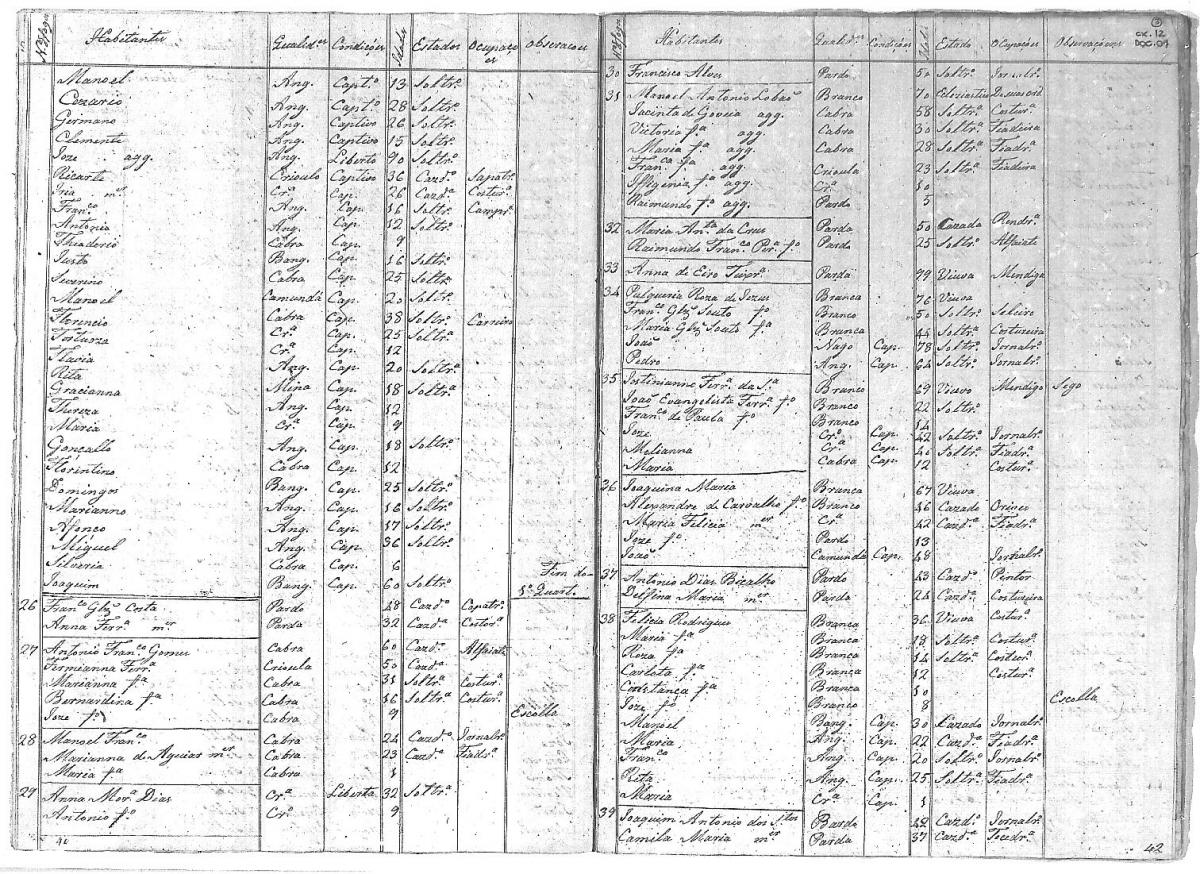 Nº Fogos Habitantes Qualid.es Condições Idades Estados Ocupaço es Observaçoes
Manoel Ang. Capt.º 13 Soltr.º
Cezario Ang. Capt.º 28 Soltr.º
Germano Ang. Captivo 26 Soltr.º
Clemente Ang. Captivo 15 Soltr.º
Joze agg. Ang. Liberto 90 Soltr.º
Ricarte Crioulo Captivo 36 Cazd.º Sapatr.º
Iria m.er Cr.ª Cap. 26 Cazd.ª Costur.ª
Fran.co Ang. Cap. 16 Soltr.º Campr.º
Antonio Ang. Cap. 12 Soltr.º
Theaderio Cabra Cap. 9
Justo Bang. Cap. 16 Soltr.º
Severino Cabra Cap. 25 Soltr.º
Manoel Camundá Cap. 20 Soltr.º
Florencio Cabra Cap. 38 Soltr.º Carreiro
Forturza Cr.ª Cap. 25 Soltr.ª
Flavia Cr.ª Cap. 12
Rita Ang. Cap. 20 Soltr.ª
Gracianna Mina Cap. 18 Soltr.ª
Thereza Ang. Cap. 12
Maria Cr.ª Cap. 9
Goncallo Ang. Cap. 18 Soltr.º
Florintino Cabra Cap. 12
Domingos Bang. Cap. 25 Soltr.º
Marianno Ang. Cap. 16 Soltr.º
Afonco Ang. Cap. 17 Soltr.º
Miguel Ang. Cap. 36 Soltr.º
Silveria Cabra Cap. 6
Joaquim Bang. Cap. 60 Soltr.º Fim do 5º Quart.
26 Fran.co Glz Costa Pardo 48 Cazd.º Capatr.º
Anna Ferr.ª m.er Parda 32 Cazd.ª Costur.ª
27 Antonio Fran.co Gomes Cabra 60 Cazd.º Alfaiate
Fermianna Ferr.ª Crioula 50 Cazd.ª
Marianna f.ª Cabra 31 Soltr.ª Costur.ª
Bernardina f.ª Cabra 16 Soltr.ª Costur.ª
Joze f.º Cabra 9 Escolla
28 Manoel Fran.co Cabra 24 Cazd.º Jornalr.º
Marianna de Aguiar m.er Cabra 23 Cazd.ª Fiadr.ª
Maria f.ª Cabra 1
29 Anna Mor.ª Dias Cr.ª Liberta 32 Soltr.ª
Antonio f.º Cr.º 9
Nº Fogos Habitantes Qualid.es Condições Idades Estado Ocupações Observações
3
CX.12
DOC.09
30 Francisco Alves Pardo 50 Soltr.º Jornalr.º
31 Manoel Antonio Lobaõ Branco 70 Ecleziastico
Jacinta de Gouveia agg. Cabra 58 Soltr.ª Costur.ª
Victoria f.ª agg. Cabra 30 Soltr.ª Fiadeira
Maria f.ª agg. Cabra 28 Soltr.ª Fiadr.ª
Fran.ca f.ª agg. Crioula 23 Soltr.ª Fiadeira
Iffiginia f.ª agg. Cr.ª 10
Raimundo f.º agg. Pardo 5
32 Maria Ant.ª da Crus Parda 50 Cazada Rendr.ª
Raimundo Fran.co Per.ª f.º Pardo 25 Soltr.º Alfaiate
33 Anna de Eiro Parda 79 Viuva Mendiga
34 Pulqueria Roza de Jezus Branca 76 Viuva
Fran.co Glz Souto f.º Branco 50 Soltr.º Seleiro
Maria Glz Souto f.ª Branca 44 Soltr.ª Costureira
Joaõ Nago Cap. 78 Soltr.º Jornalr.º
Pedro Ang. Cap. 64 Soltr.º Jornalr.º
35 Jostinianno Ferr.ª da S.ª Branco 69 Viuvo Mendigo Sego
Joaõ Evangelista Ferr.ª f.º Branco 22 Soltr.º
Fran.co de Paula f.º Branco 14
Joze Cr.º Cap. 42 Soltr.º Jornalr.º
Melianna Cr.ª Cap. 40 Soltr.ª Fiadr.ª
Maria Cabra Cap. 12 Costur.ª
36 Joaquina Maria Branca 67 Viuva
Alexandre de Carvalho f.º Branco 46 Cazado Orives
Maria Felicia m.er Cr.ª 42 Cazd.ª Fiadr.ª
Joze f.º Pardo 13
Joaõ Camundá Cap. 48 Jornalr.º
37 Antonio Dias Bicalho Pardo 43 Cazd.º Pintor
Delfina Maria m.er Parda 24 Cazd.ª Costureira
38 Felicia Rodrigues Branca 36 Viuva Costur.ª
Maria f.ª Branca 18 Soltr.ª Costur.ª
Roza f.ª Branca 14 Soltr.ª Costur.ª
Carlota f.ª Branca 12 Costur.ª
Constança f.ª Branca 10
Joze f.º Branco 8 Escolla
Manoel Bang. Cap. 30 Cazado Jornalr.º
Maria Ang. Cap. 22 Cazd.ª Fiadr.ª
Fran.co Ang. Cap. 20 Soltr.º Jornalr.º
Rita Ang. Cap. 25 Soltr.ª Fiadr.ª
Maria Cr.ª Cap. 1
39 Joaquim Antonio dos S.tos Pardo 48 Cazd.º Jornalr.º
Camila Maria m.er Parda 37 Cazd.ª Tecedr.ª
42